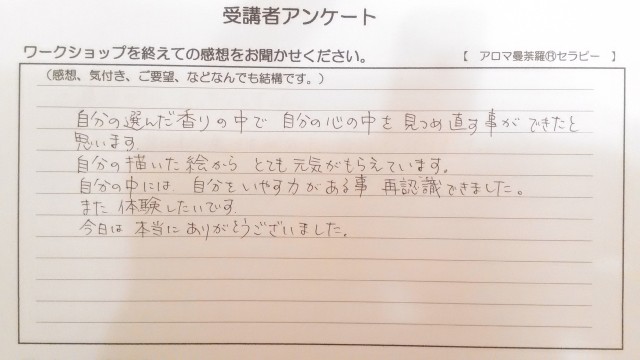 受講者アンケート
ワークショップを終えての感想をお聞かせください。 【 アロマ曼荼羅Ⓡセラピー 】
(感想、気付き、ご要望、などなんでも結構です。)
自分の選んだ香りの中で 自分の心の中を 見つめ直す事が できたと
思います
自分の描いた絵から とても 元気がもらえています。
自分の中には 自分をいやす力がある事 再認識できました。
また 体験したいです
今日は 本当に ありがとうございました。